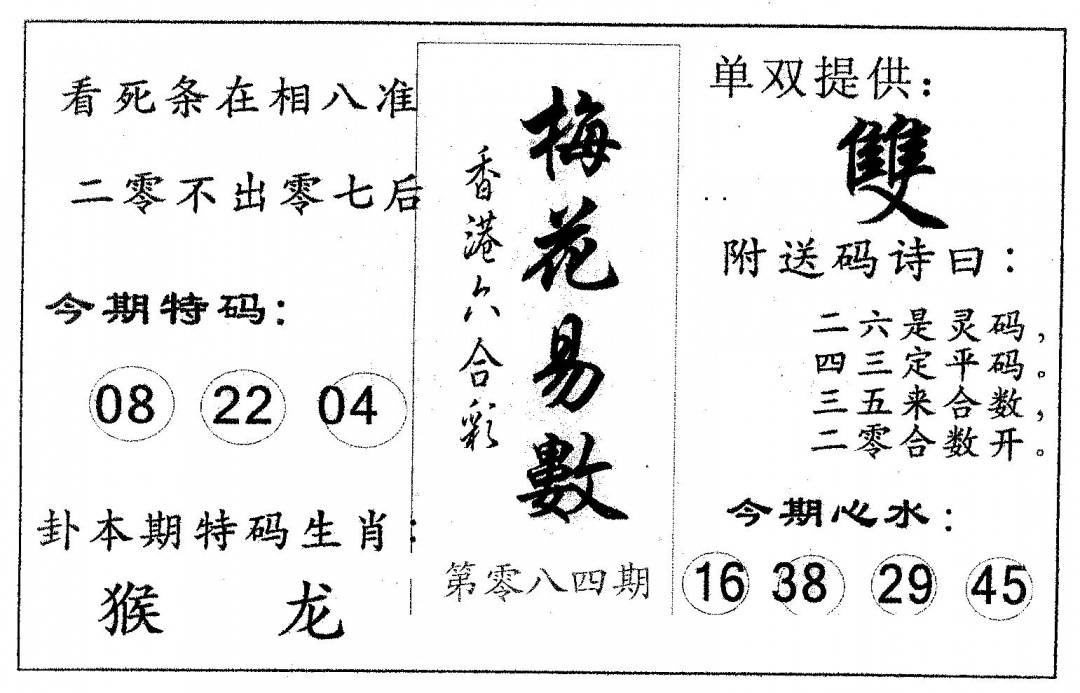 看死条在相八准
二零不出零七后
今期特码：
08 22 04
卦本期特码生肖：
猴 龙
梅花易數
香港六合彩
第零八四期
单双提供：
雙
附送码诗曰：
二六是灵码，
四三定平码。
三五来合数，
二零合数开。
今期心水：
16 38 29 45